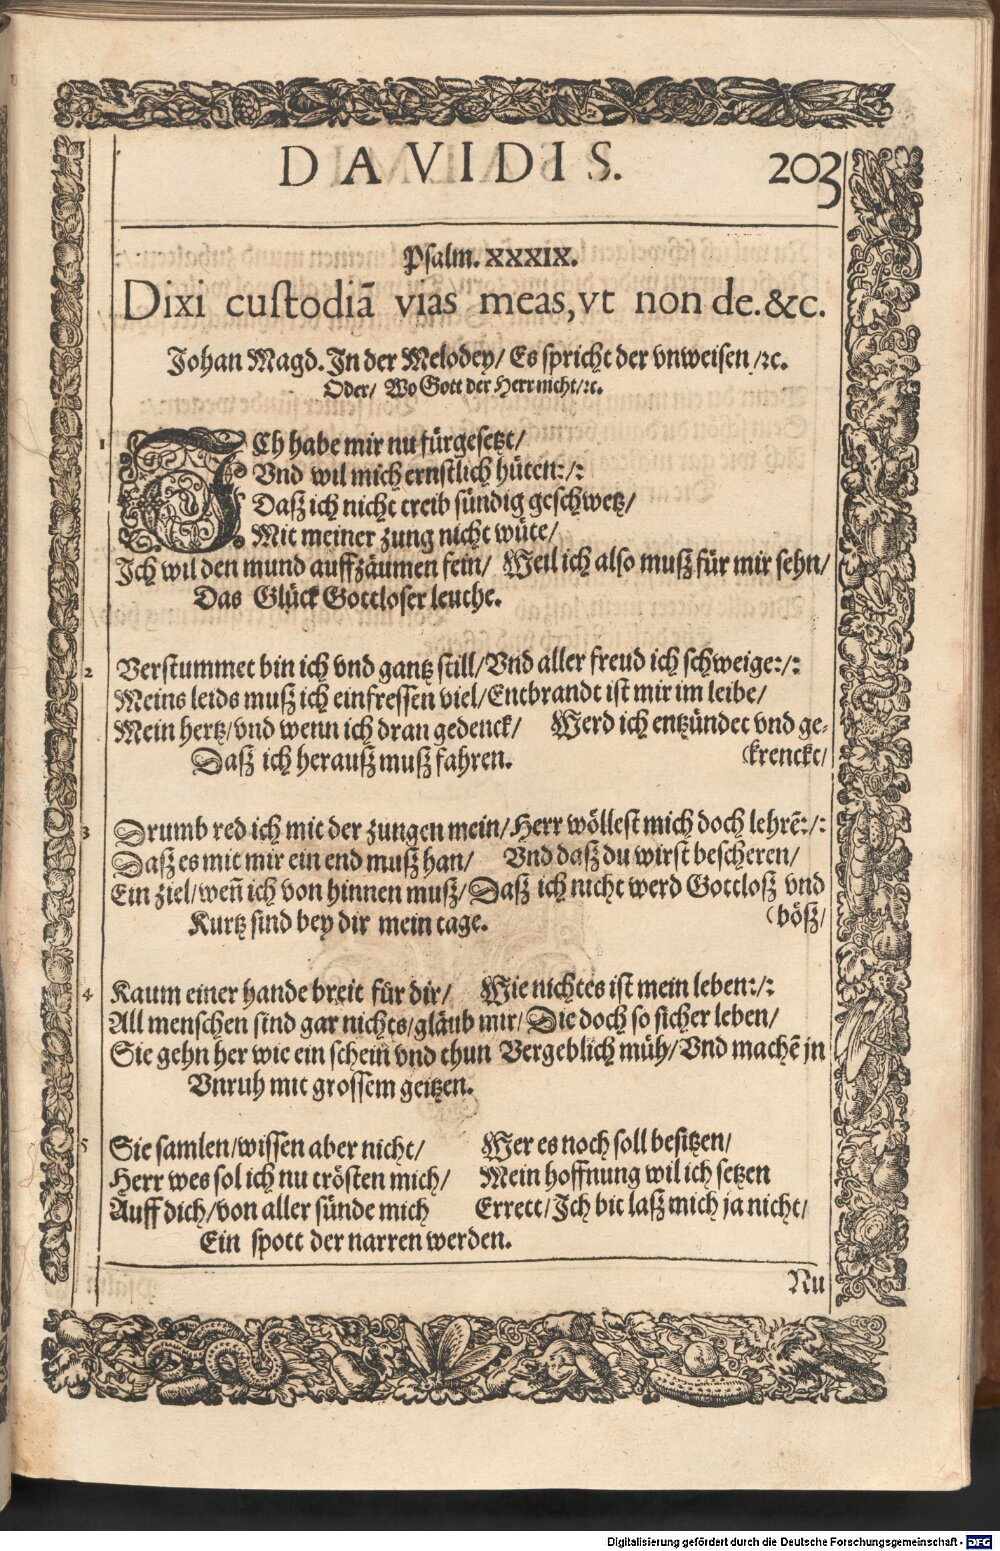 DAVIDIS. 203
Psalm. XXXIX.
Dixi custodiā vias meas, vt non de. &c.
Johan Magd. In der Melodey/ Es spricht der vnweisen/ꝛc.
Oder/ Wo Gott der Herr nicht/ꝛc.
1 ICh habe mir nu fürgesetzt/
Vnd wil mich ernstlich hüten:/:
Dasz ich nicht treib sündig geschwetz/
Mit meiner zung nicht wüte/
Ich wil den mund auffzäumen fein/ Weil ich also musz für mir sehn/
Das Glück Gottloser leuthe.
2 Verstummet bin ich vnd gantz still/ Vnd aller freud ich schweige:/:
Meins leids musz ich einfressen viel/ Entbrandt ist mir im leibe/
Mein hertz/ vnd wenn ich dran gedenck/ Werd ich entzündet vnd ge-
Dasz ich herausz musz fahren. (krenckt/
3 Drumb red ich mit der zungen mein/ Herr wöllest mich doch lehrē:/:
Dasz es mit mir ein end musz han/ Vnd dasz du wirst bescheren/
Ein ziel/ weñ ich von hinnen musz/ Dasz ich nicht werd Gottlosz vnd
Kurtz sind bey dir mein tage. (bösz/
4 Kaum einer hande breit für dir/ Wie nichtes ist mein leben:/:
All menschen sind gar nichts/ gläub mir/ Die doch so sicher leben/
Sie gehn her wie ein schein vnd thun Vergeblich müh/ Vnd machē jn
Vnruh mit grossem geitzen.
5 Sie samlen/ wissen aber nicht/ Wer es noch soll besitzen/
Herr wes sol ich nu trösten mich/ Mein hoffnung wil ich setzen
Auff dich/ von aller sünde mich Errett/ Ich bit lasz mich ja nicht/
Ein spott der narren werden.
Nu
Digitalisierung gefördert durch die Deutsche Forschungsgemeinschaft - DFG